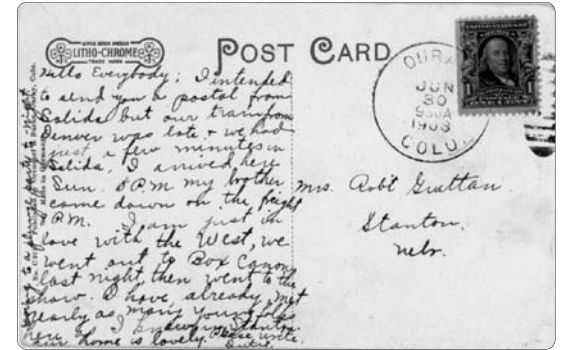 SUPER SEVEN PROCESS
LITHO-CHROME
TRADE MARK
POST CARD
OURAY
JUN
30
930A
1908
COLO.
1
Hello Everybody; I intended
to send you a postal from
Salida but our train from
Denver was late + we had
just a few minutes in
Salida, I arrived here
Sun. 8 PM my brother
came down on the freight
8 P.M. I am just in
love with the West, we
went out to Box Canon
last night, then went to the
show. I have already met
nearly as many young folks
here as I knew in Stanton.
Our home is lovely. Please write.
Mrs. Robt Grattan.
Stanton.
Nebr.
going to a party to-night